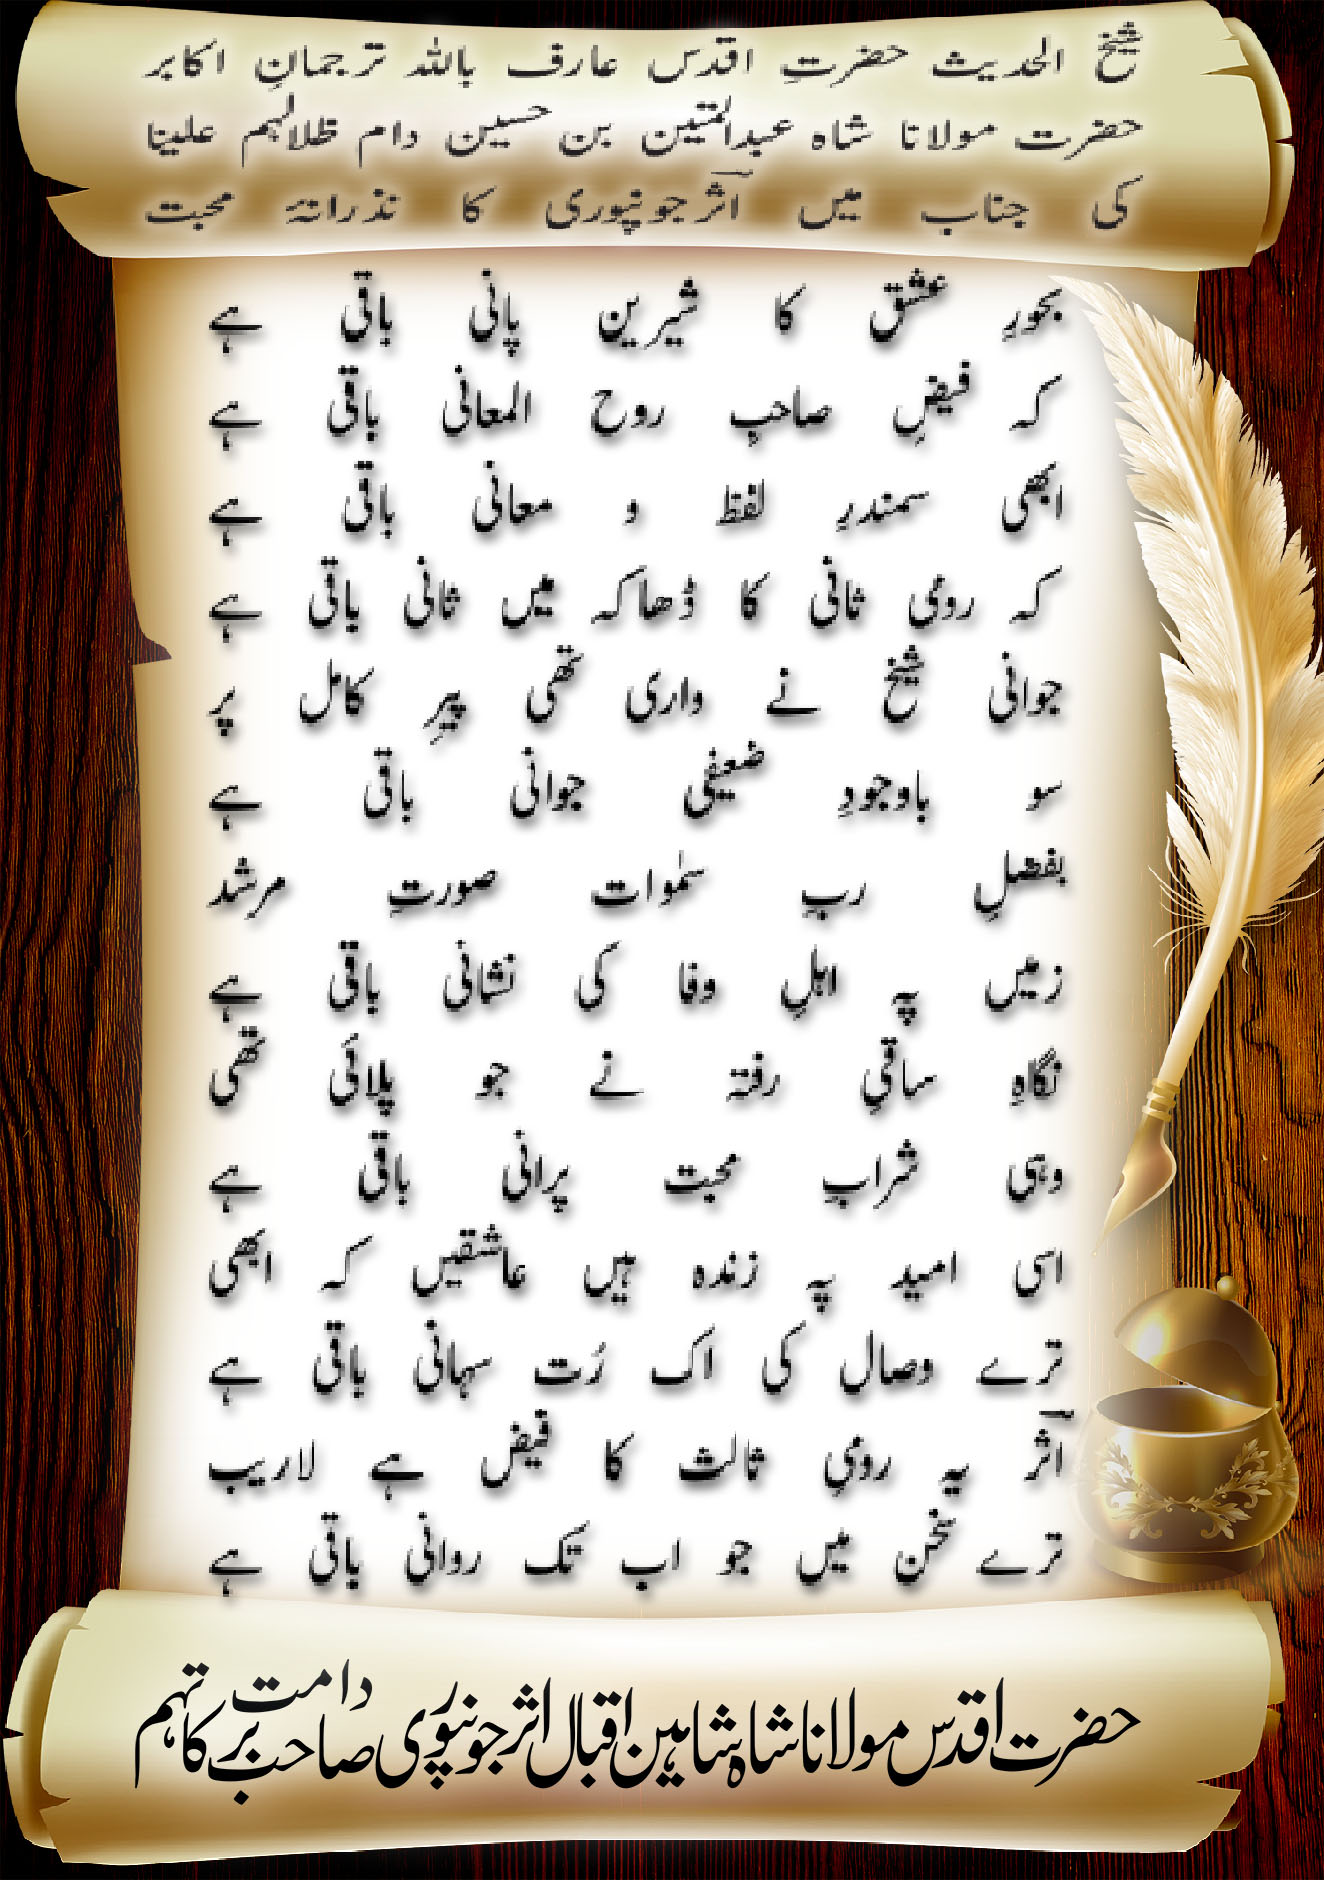 شیخ الحدیث حضرتِ اقدس عارف باللہ ترجمانِ اکابر
حضرت مولانا شاہ عبدالمتین بن حسین دام ظلالہم علینا
کی جناب میں اثرؔجونپوری کا نذرانۂ محبت
بحورِ عشق کا شیریں پانی باقی ہے
کہ فیضِ صاحبِ روح المعانی باقی ہے
ابھی سمندرِ لفظ و معانی باقی ہے
کہ رومیِ ثانی کا ڈھاکہ میں ثانی باقی ہے
جوانی شیخ نے واری تھی پیرِ کامل پر
سو باوجودِ ضعیفی جوانی باقی ہے
بفضلِ ربِ سمٰوات صورتِ مرشد
زمیں پہ اہلِ وفا کی نشانی باقی ہے
نگاہِ ساقیِ رفتہ نے جو پلائی تھی
وہی شرابِ محبت پرانی باقی ہے
اسی امید پہ زندہ ہیں عاشقیں کہ ابھی
ترے وصال کی اک رُت سہانی باقی ہے
اثرؔ یہ رومیِ ثالث کا فیض ہے لاریب
ترے سخن میں جو اب تک روانی باقی ہے
حضرت اقدس مولانا شاہ شاہین اقبال اثر جونپوری صاحب دامت برکاتہم